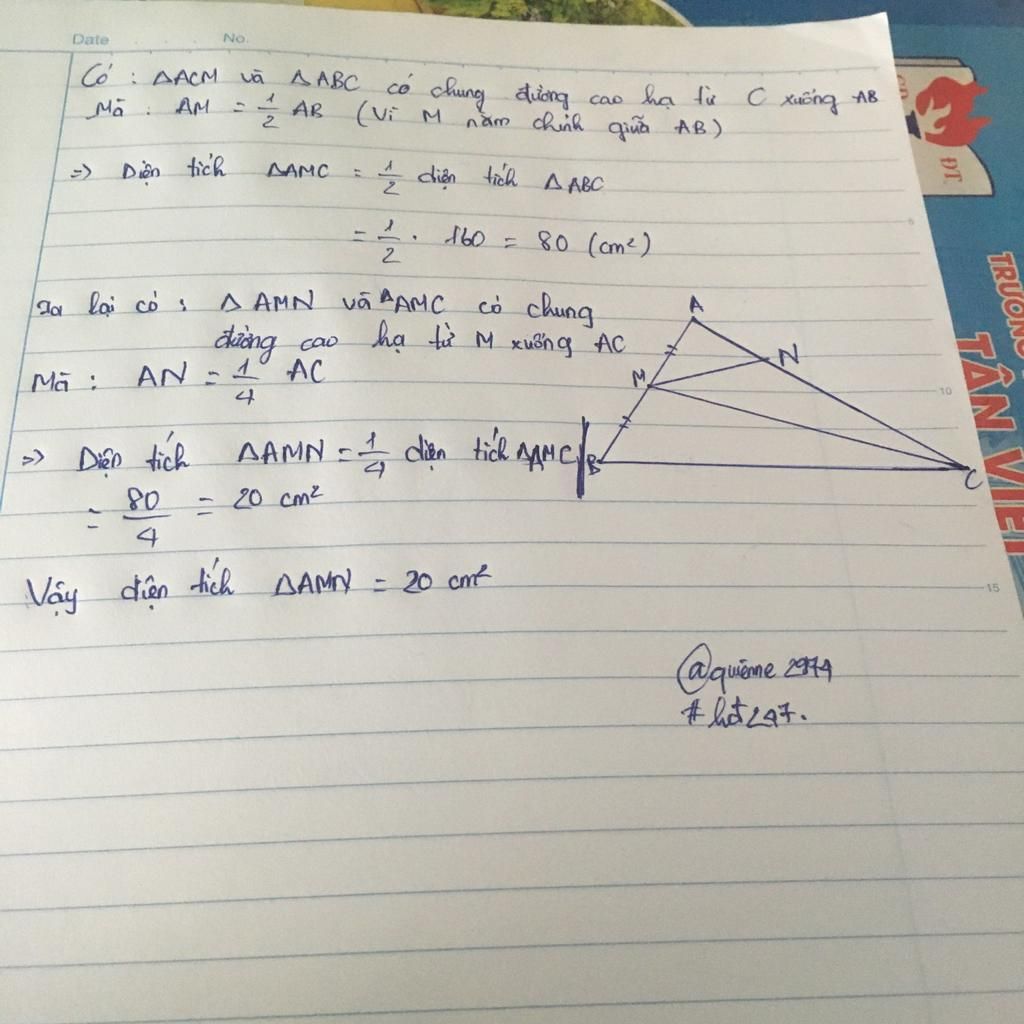 Date No.
Có : ΔACM và ΔABC có chung đường cao hạ từ C xuống AB
Mà : AM = 1/2 AB (Vì M nằm chính giữa AB)
=> Diện tích ΔAMC = 1/2 diện tích ΔABC
= 1/2 . 160 = 80 (cm²)
Ta lại có : ΔAMN và ΔAMC có chung
đường cao hạ từ M xuống AC
Mà : AN = 1/4 AC
=> Diện tích ΔAMN = 1/4 diện tích ΔAMC
= 80/4 = 20 cm²
Vậy diện tích ΔAMN = 20 cm²
A
N
M
B
C
@quienne 2974
#hđ247.
5
10
15
ĐT
TRƯỜNG
TÂN VIỆT